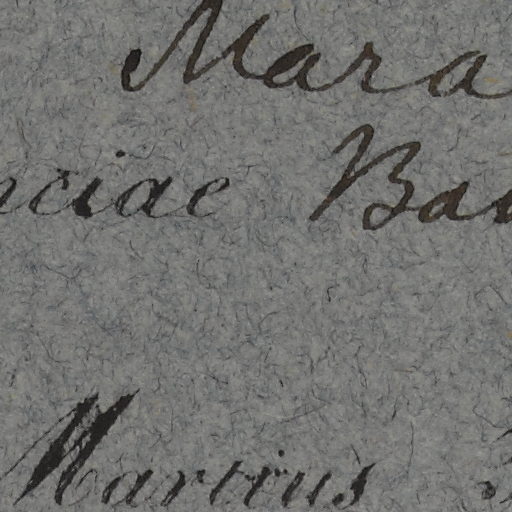 Mara
ciae Ba
Martius